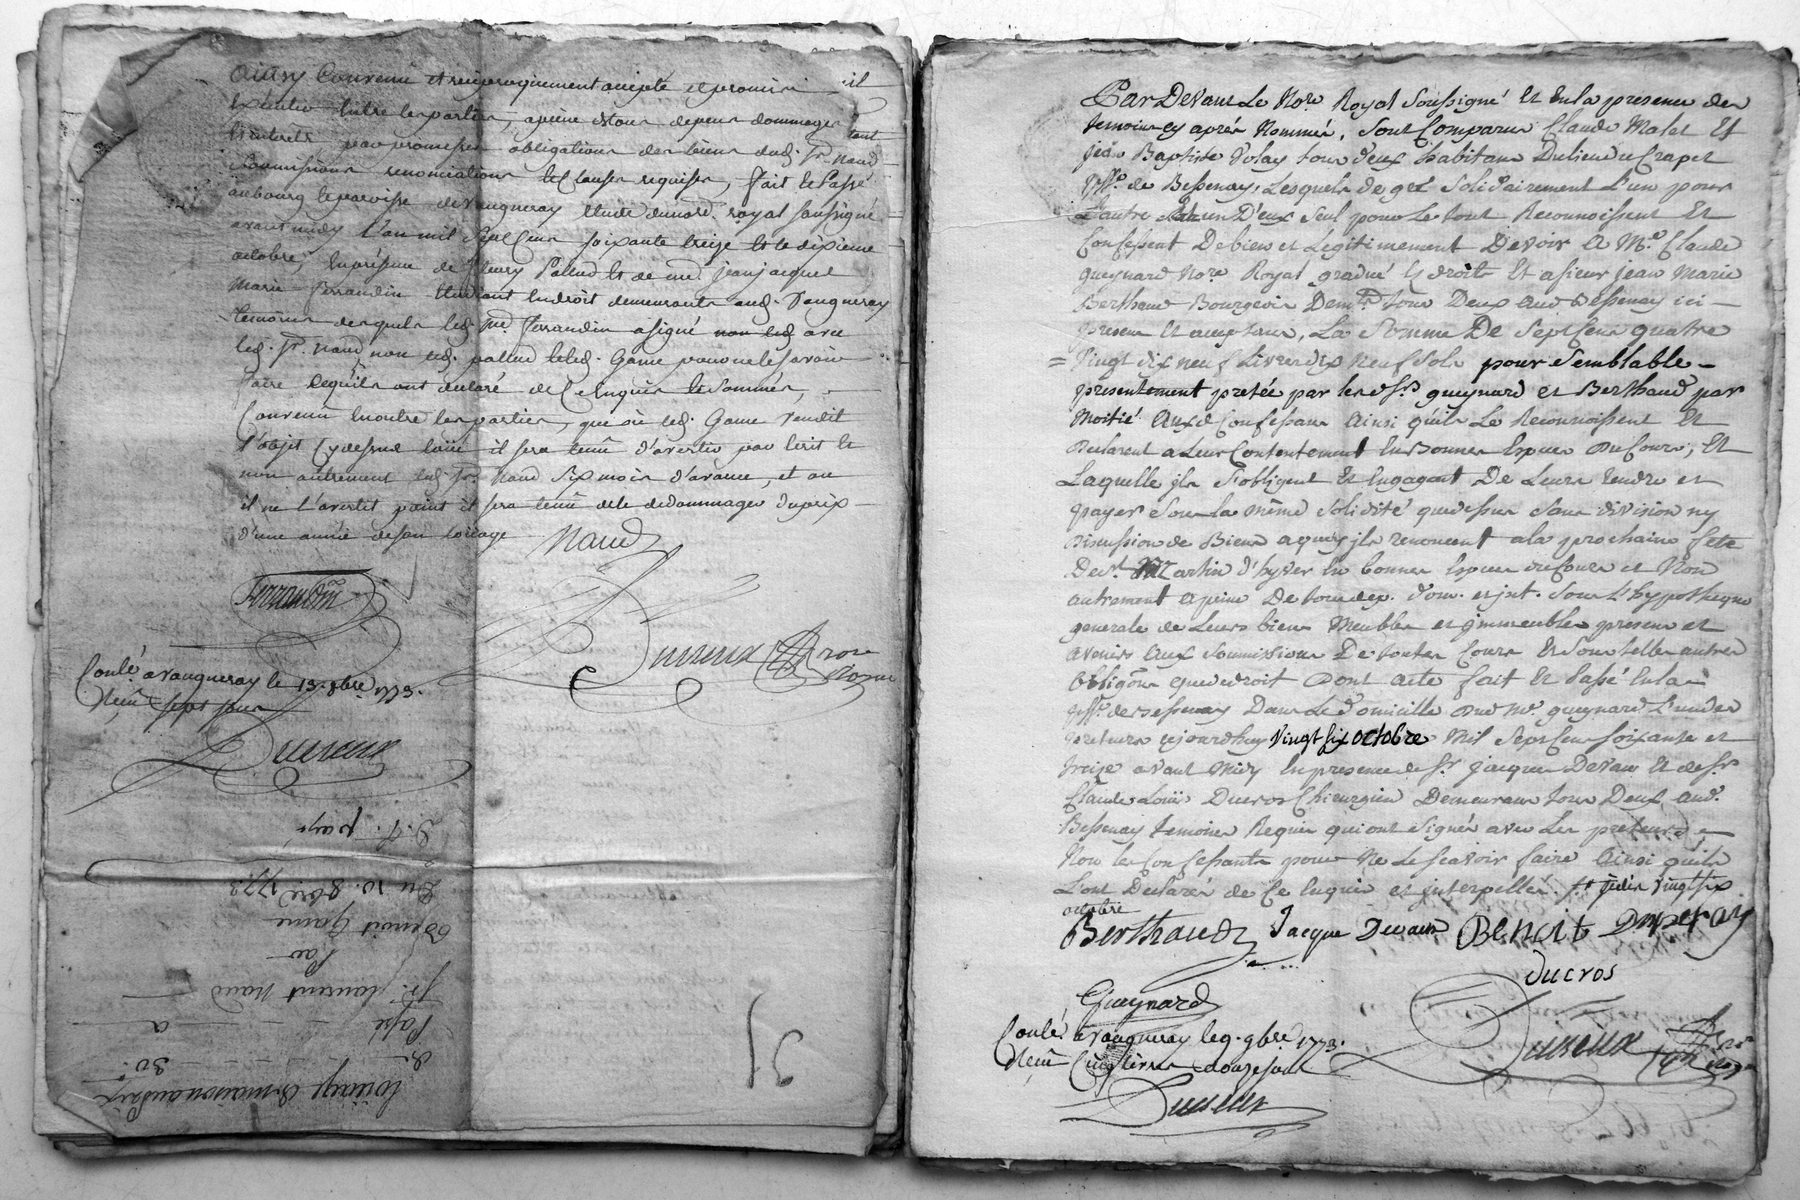 Ainsy Convenu et reciproquement accepté et promis
Executer Entre les parties, a peine de tous depens dommages
Interets par promesses obligations des biens dud. Sr. Naud
Soumissions renonciations et Clauses requises, fait et Passé
au bourg et paroisse de Vaugneray étude du nore. royal soussigné
avant midy L'an mil sept Cent soixante treize Et le dixieme
octobre, En presence de fleury Pallud Et de me. jean jacques
Marie ferrandin Etudiant En droit demeurants aud. Vaugneray
temoins desquels led. me. ferrandin a signé avec
led. Sr. Naud non led. pallud et led. Game pour ne le savoir
faire Ce qu'ils ont déclaré de Ce Enquis Et Sommés,
Convenu En outre Les parties, que où led. Game rendit
L'objet Cy dessus loüé il sera tenu d'avertir par Ecrit Et
non autrement led. Sr. Naud Six mois d'avance, et ou
il ne L'avertit point il sera tenu de le dedommager du prix
d'une année de son loüage
Naud
Ferrandin
Duvieux nore
royal
Conlé a vaugneray le 13. 8bre 1773.
Reçu sept sous
Duvieux
D. F. payé
Du 10. 8bre 1773
Benoit Game
Par
Sr. Laurent Naud
Passé a
30
Loüage de maison au prix
31
Par Devant Le Nore Royal Soussigné Et En la presence des
temoins cy aprés Nommés, Sont Comparus Claude Molet Et
jean Baptiste Volay tous d'eux habitans Du lieu de Crapet
psse. de Bessenay, Lesquels de gré Solidairement L'un pour
L'autre Et un D'eux Seul pour Le tout Reconnoissent Et
Confessent De bien et Legitimement Devoir A Me. Claude
gueynard Nore Royal gradué Es droits Et a sieur jean Marie
Berthaud Bourgeois Demts. tous Deux aud Bessenay ici
present Et acceptans, La Somme De Sept Cent quatre
= Vingt dix neuf Livres dix neuf Sols pour Semblable
presentement pretée par les d. srs gueynard et Berthaud par
Moitié Auxd Confessans Ainsi qu'ils Le Reconnoissent Et
Declarent a Leur Contentement En Bonnes Especes Du Cours, Et
Laquelle jls S'obligent Et Engagent De Leurs rendre et
payer Sous la même Solidité que dessus Sans division ny
Discussion de Biens a quoy jls renoncent a la prochaine fete
De st. Martin d'hyver En bonnes Especes du Cours et Non
autrement a peine De tous dep. dom. et jnt. Sous L'hypotheque
generale de Leurs biens Meubles et jmmeubles presens et
avenirs aux Soumissions De toutes Cours Et Sous telles autres
Obligöns que de droit Dont acte fait Et Passé En la
psse. de Bessenay Dans Le domicille Dud Me. gueynard L'un des
preteurs cejourdhuy Vingt six octobre Mil Sept Cent soixante et
treize avant Midy En presence de Sr. jacque Devaux Et de Sr.
Claude Loüis Ducros Chirurgien Demeurans tous Deux aud.
Bessenay temoins Requis qui ont Signés avec Les preteurs
Non les Confessants pour Ne Le Scavoir faire Ainsi qu'ils
L'ont Declarés de Ce Enquis et jnterpellés. vingt six
octobre
Berthaud Jacque Devaux BENOIT Duperay
ducros
Gueynard
Duvieux nore
royal
Conlé a vaugneray le 9. 9bre 1773.
Reçu Cinq livres douze sous
Duvieux